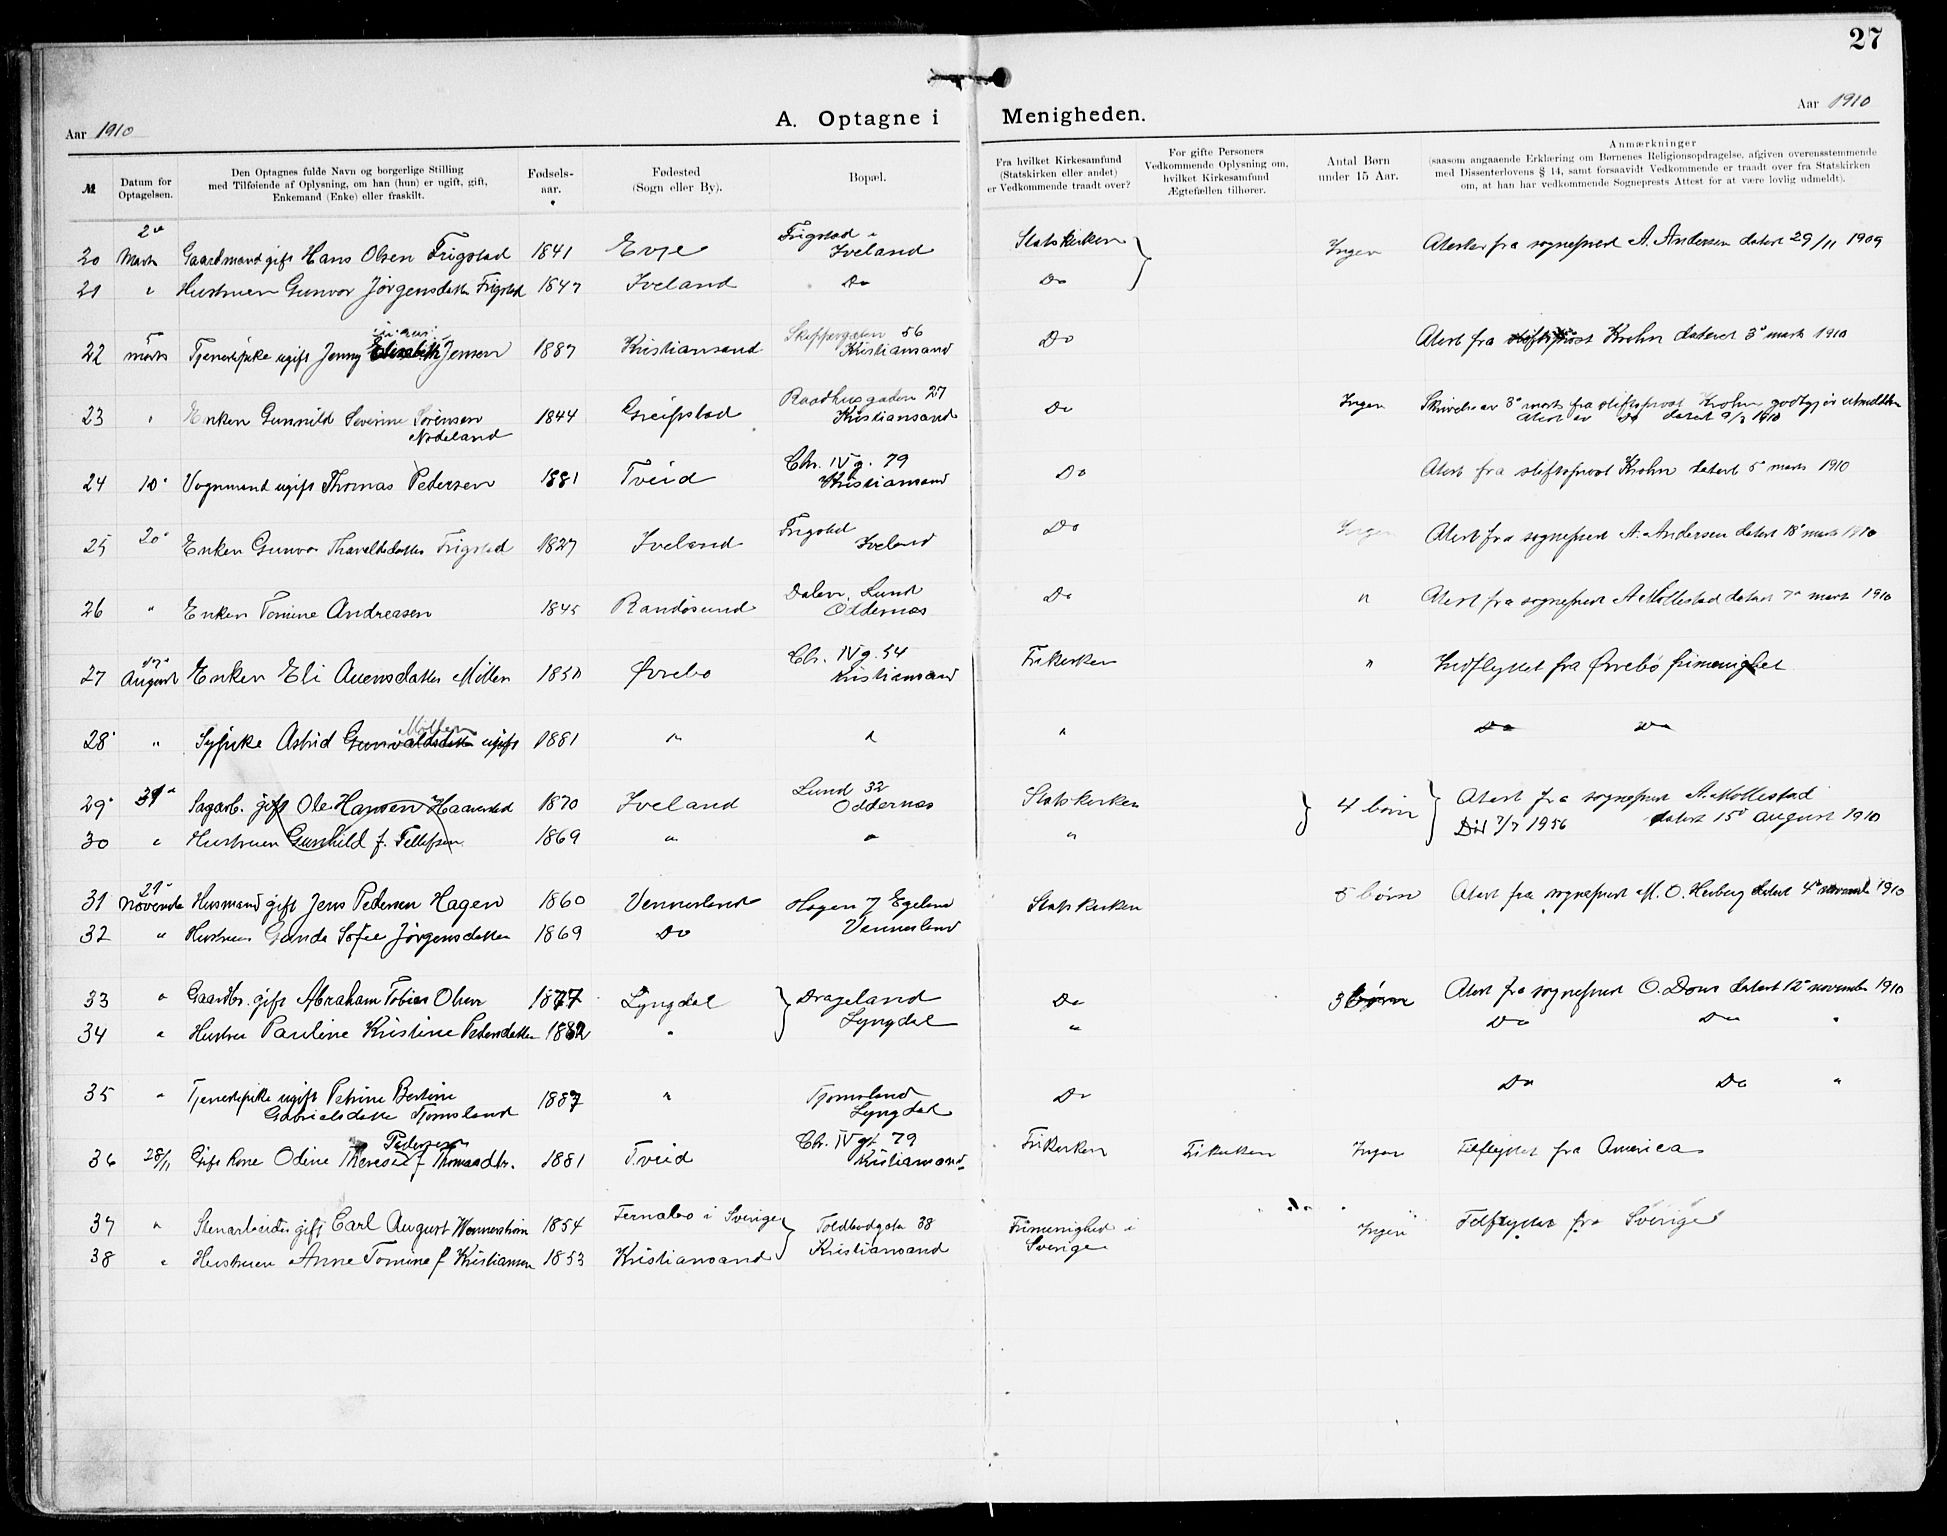 27
Aar 1910
A. Optagne i Menigheden.
Aar 1910
№
Datum for Optagelsen.
Den Optagnes fulde Navn og borgerlige Stilling
med Tilføiende af Oplysning, om han (hun) er ugift, gift,
Enkemand (Enke) eller fraskilt.
Fødsels-
aar.
Fødested
(Sogn eller By).
Bopæl.
Fra hvilket Kirkesamfund
(Statskirken eller andet)
er Vedkommende traadt over?
For gifte Personers
Vedkommende Oplysning om,
hvilket Kirkesamfund
Ægtefællen tilhører.
Antal Børn
under 15 Aar.
Anmærkninger
(saasom angaaende Erklæring om Børnenes Religionsopdragelse, afgiven overensstemmende
med Dissenterlovens § 14, samt forsaavidt Vedkommende er traadt over fra Statskirken
om, at han har vedkommende Sogneprests Attest for at være lovlig udmeldt).
20 Marts Gaardmand gift Hans Olsen Frigstad 1841 Evje Frigstad Iveland Statskirken Ingen Atester fra sogneprest A. Andersen datert 29/11 1909
21 " Hustruen Gunvor Jørgensdatter Frigstad 1847 Iveland Do Do
22 marts Tjenestepike ugift Jenny Elisabeth Jensen 1887 Kristiansand Skippergaten 56 Kristiansand Do Atest fra stiftsprost Krohn dateret 3' marts 1910
23 " Enken Gunnild Severine Sörensen Nodeland 1844 Greipstad Raadhusgaden 27 Kristiansand Do Ingen Skrivelse av 3' marts fra stiftsprost Krohn
Atest av Do datert 9/3 1910
24 10' Vognmand ugift Thomas Pedersen 1881 Tveid Chr. IV g. 79 Kristiansand Do Atest fra stiftsprost Krohn datert 5' marts 1910
25 20' Enken Gunvor Frigstad 1827 Iveland Frigstad Iveland Do Ingen Atest fra sogneprest A. Andersen datert 18' marts 1910
26 " Enken Tomine Andreasen 1845 Randösund Dalen, Lund Oddernes Do " Atest fra sogneprest A Mollestad datert 7' marts 1910
27 August Enken Eli Auensdatter Möllen 1850 Øvrebo Chr. IV g. 54 Kristiansand Frikirken " Indflyttet fra Øvrebö frimenighet
28 " Sypike Astrid Gunvaldsdatter Möllen ugift 1881 " " " Do Do
29 31' Sagarb. gift Ole Hansen Haavorstad 1870 Iveland Lund 32 Oddernes Statskirken 4 börn Atest fra sogneprest A. Mollestad
30 " Hustruen Gunhild f. Tellefsen 1869 " " " Död 7/7 1956 datert 15' august 1910
31 November Husmand gift Jens Pedersen Hagen 1860 Vennesland Hagen Egeland Vennesland Statskirken 5 börn Atest fra sogneprest M. O. datert 4' november 1910
32 " Hustruen Gunda Sofie Jörgensdatter 1869 Do
33 " Gaardbr. gift Abraham Tobias Olsen 1877 Lyngdal Drageland Lyngdal Do 3 börn Atest fra sogneprest O. Dons datert 12' november 1910
34 " Hustru Pauline Kristine Pedersdatter 1882 " " Do Do "
35 " Tjenestepike ugift Petrine Bertine
Gabrielsdatter Tjomsland 1887 " Tjomsland Lyngdal Do Do Do "
36 28/11 Gift Kone Odine Therese Pedersen f. Thomasdtr. 1881 Tveid Chr. IV gt 79 Kristiansand Frikirken Frikirken Ingen Tilflyttet fra America
37 " Stenarbeider gift Carl August Wennerström 1854 Fernebo i Sverige Toldbodgata 38 Frimenighed i Sverige Do Ingen Tilflyttet fra Sverige
38 " Hustruen Anne Tomine f Kristiansen 1853 Kristiansand Kristiansand